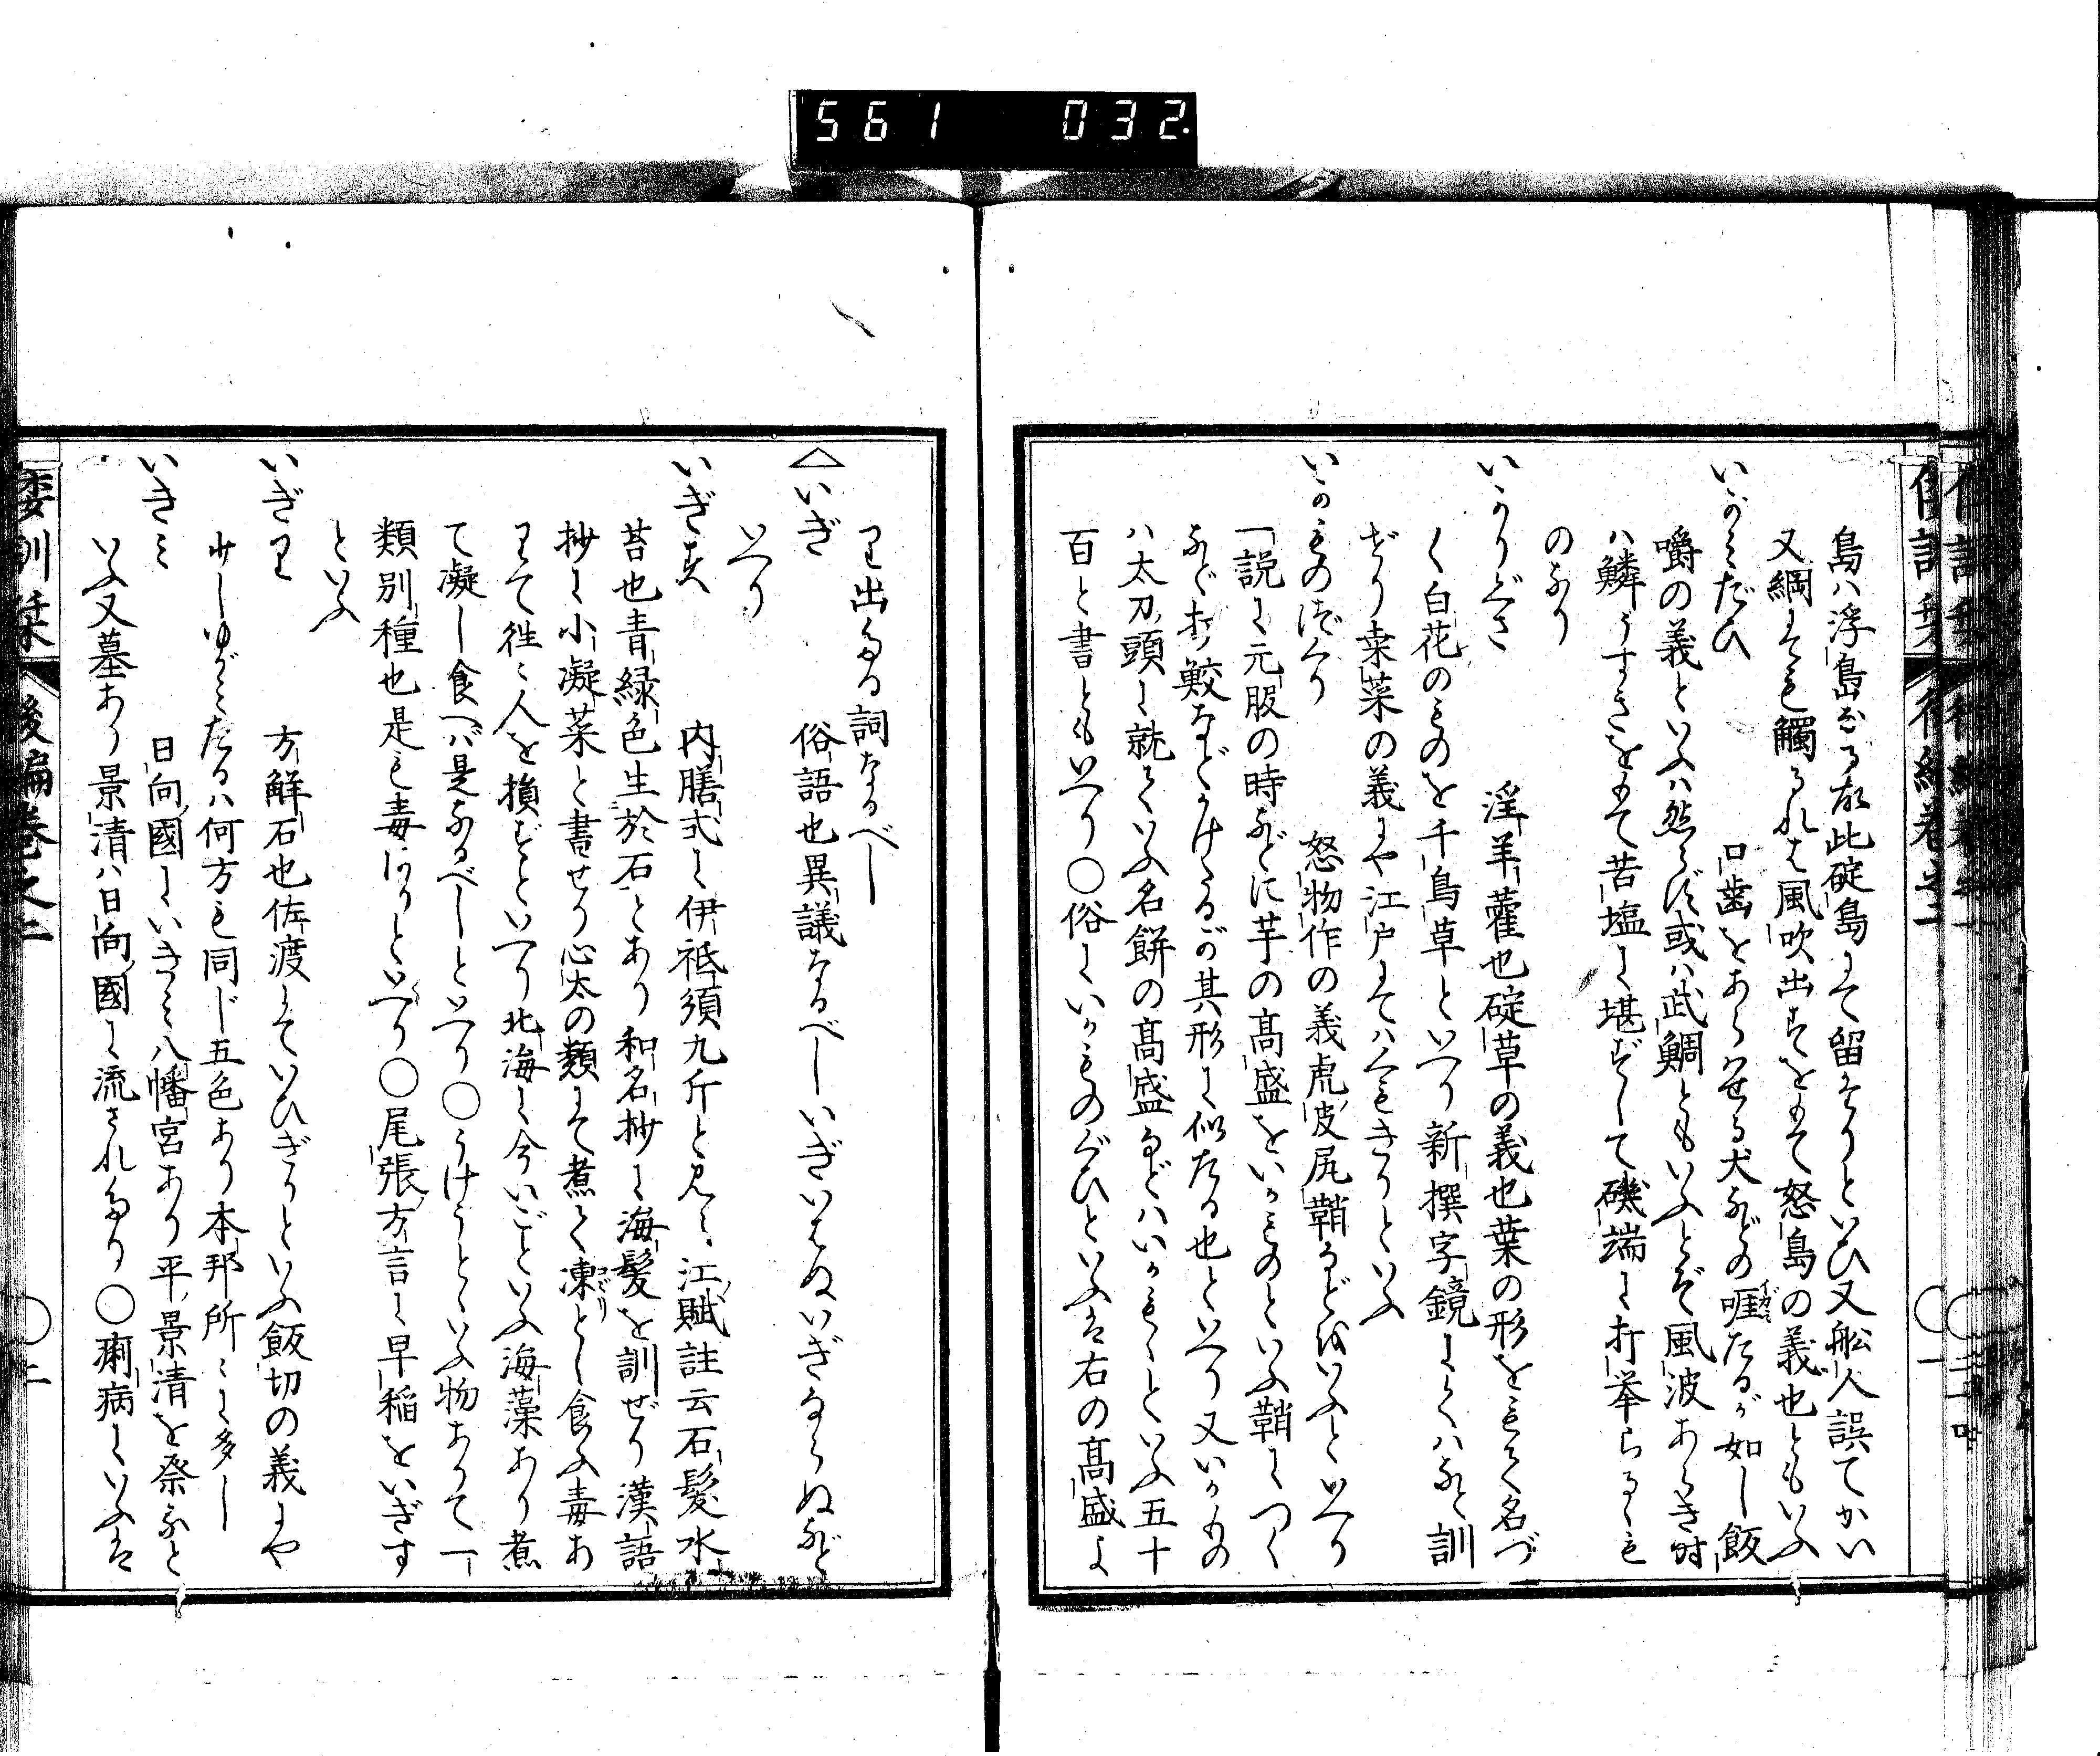 561 032.
倭訓栞 後編巻之二
島ハ浮島なる故此碇島にて留たりといひ又舩人誤てかい
又綱にても觸るれは風吹出すをもて怒島の義也ともいふ
いかみだひ 口歯をあらハせる犬などの啀たるが如し飯
嚼の義といふハ然らず或ハ武鯛ともいふとぞ風波あらき時
ハ鱗うすきをもて苦塩に堪ずして磯端に打挙らるゝも
のなり
いかりぐさ 淫羊藿也碇草の義也葉の形をもて名づ
く白花のものを千鳥草といへり新撰字鏡にくハなと訓
ぜり桒菜の義にや江戸にてハくもきりといふ
いかものづくり 怒物作の義虎皮尻鞘などをいふといへり
一説に元服の時などに芋の髙盛をいかものといふ鞘につく
など打鮫などかけたるが其形に似たる也といへり又いかもの
ハ太刀頭に就ていふ名餅の髙盛などハいかもゝといふ五十
百と書ともいへり〇俗にいかものぐひといふは右の髙盛よ
り出たる詞なるべし
△いぎ 俗語也異議なるべしいぎいはぬいぎならぬなど
いへり
いぎす 内膳式に伊祗須九斤と見ゆ江賦註云石髪水
苔也青緑色生於石とあり和名抄に海髪を訓ぜり漢語
抄に小凝菜と書せり心太の類にて煮て凍とし食ふ毒あ
りて徃〻人を損ずといへり北海に今いごといふ海藻あり煮
て凝し食へバ是なるべしといへり〇うけうとゝいふ物ありて一
類別種也是も毒ありといへり〇尾張方言に早稲をいぎす
といふ
いぎり 方解石也佐渡にていひぎりといふ飯切の義にや
少しゆがみたるハ何方も同じ五色あり本邦所〻に多し
いきミ 日向國にいきミ八幡宮あり平景清を祭ると
いふ又墓あり景清ハ日向國に流されたり〇痢病にいふは
倭訓栞 後編巻之二 〇二